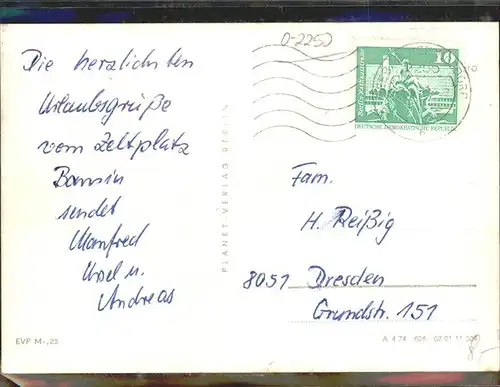 0-2250
Die herzlichsten
Urlaubsgrüße
vom Zeltplatz
Bansin
sendet
Manfred
Ursel u.
Andreas
PLANET-VERLAG BERLIN
10
DEUTSCHE DEMOKRATISCHE REPUBLIK
Fam.
H. Reißig
8051 Dresden
Grundstr. 151
EVP M -,25
A 4 74